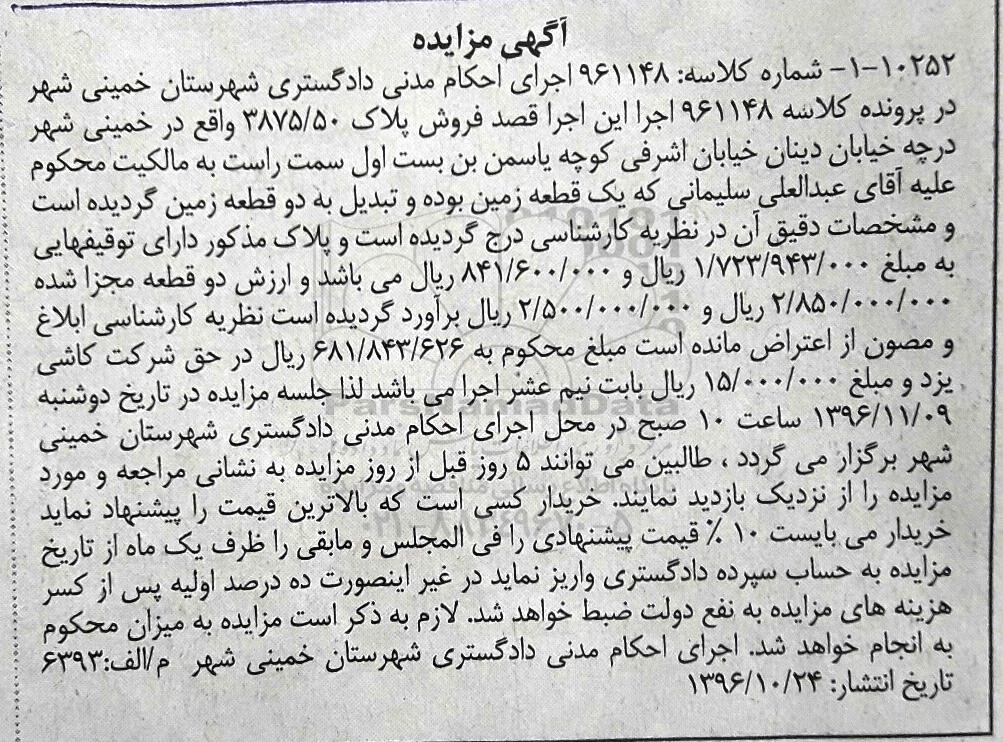 آگهی مزایده
۱۰۲۵۲-۱-۱- شماره کلاسه: ۹۶۱۱۴۸ اجرای احکام مدنی دادگستری شهرستان خمینی شهر
در پرونده کلاسه ۹۶۱۱۴۸ اجرا این اجرا قصد فروش پلاک ۳۸۷۵/۵۰ واقع در خمینی شهر
درچه خیابان دینان خیابان اشرفی کوچه یاسمن بن بست اول سمت راست به مالکیت محکوم
علیه آقای عبدالعلی سلیمانی که یک قطعه زمین بوده و تبدیل به دو قطعه زمین گردیده است
و مشخصات دقیق آن در نظریه کارشناسی درج گردیده است و پلاک مذکور دارای توقیفهایی
به مبلغ ۱/۷۲۳/۹۴۳/۰۰۰ ریال و ۸۴۱/۶۰۰/۰۰۰ ریال می باشد و ارزش دو قطعه مجزا شده
۲/۸۵۰/۰۰۰/۰۰۰ ریال و ۲/۵۰۰/۰۰۰/۰۰۰ ریال برآورد گردیده است نظریه کارشناسی ابلاغ
و مصون از اعتراض مانده است مبلغ محکوم به ۶۸۱/۸۴۳/۶۲۶ ریال در حق شرکت کاشی
یزد و مبلغ ۱۵/۰۰۰/۰۰۰ ریال بابت نیم عشر اجرا می باشد لذا جلسه مزایده در تاریخ دوشنبه
۱۳۹۶/۱۱/۰۹ ساعت ۱۰ صبح در محل اجرای احکام مدنی دادگستری شهرستان خمینی
شهر برگزار می گردد ، طالبین می توانند ۵ روز قبل از روز مزایده به نشانی مراجعه و مورد
مزایده را از نزدیک بازدید نمایند. خریدار کسی است که بالاترین قیمت را پیشنهاد نماید
خریدار می بایست ۱۰ % قیمت پیشنهادی را فی المجلس و مابقی را ظرف یک ماه از تاریخ
مزایده به حساب سپرده دادگستری واریز نماید در غیر اینصورت ده درصد اولیه پس از کسر
هزینه های مزایده به نفع دولت ضبط خواهد شد. لازم به ذکر است مزایده به میزان محکوم
به انجام خواهد شد. اجرای احکام مدنی دادگستری شهرستان خمینی شهر م/الف:۶۳۹۳
تاریخ انتشار: ۱۳۹۶/۱۰/۲۴
ParsNamadData